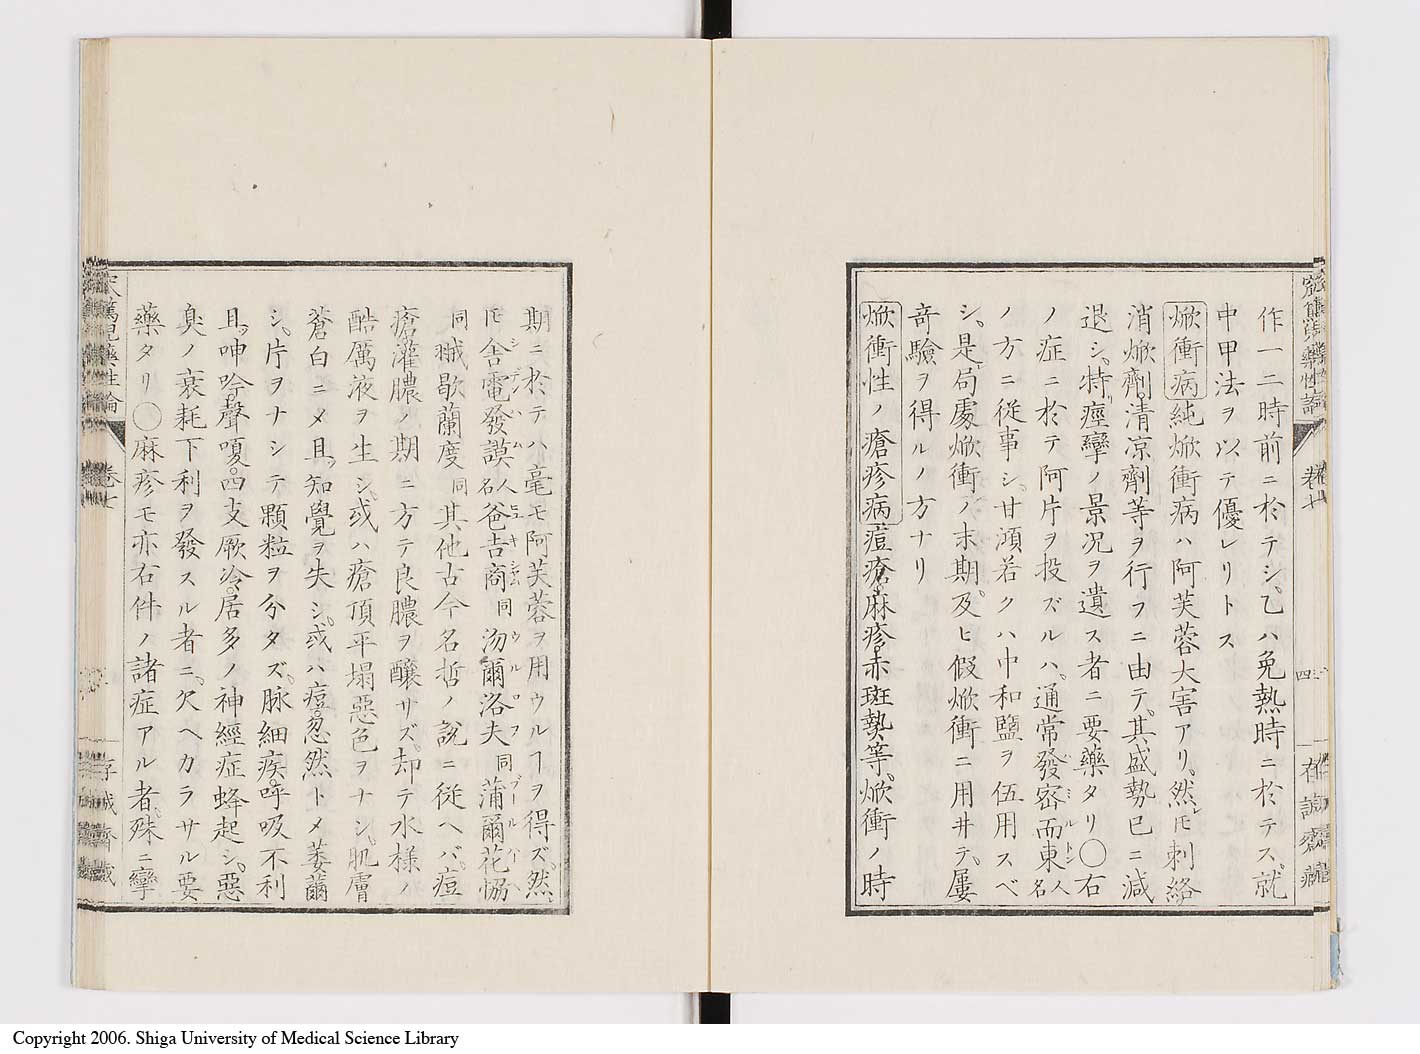 作一二時前ニ於テシ、乙ハ免熱時ニ於テス。就
中甲法ヲ以テ優レリトス
焮衝病 純焮衝病ハ阿芙蓉大害アリ。然レ𪜈刺絡
消焮劑、清凉劑等ヲ行フニ由テ、其盛勢已ニ減
退シ、特リ痙攣ノ景況ヲ遺ス者ニ要藥タリ〇右
ノ症ニ於テ阿片ヲ投ズルハ、通常發密而東人名
ノ方ニ従事シ、甘澒若クハ中和鹽ヲ伍用スベ
シ。是レ局處焮衝ノ末期、及ヒ假焮衝ニ用井テ、屢
奇驗ヲ得ルノ方ナリ
焮衝性ノ瘡疹病 痘瘡。麻疹。赤斑。㔟等。焮衝ノ時
期ニ於テハ毫モ阿芙蓉ヲ用ウルヿヲ得ズ。然
𪜈舎電發謨人名爸吉商同汤爾洛夫同蒲爾花協
同瞮歇蘭度同其他古今名哲ノ説ニ従ヘバ、痘
瘡灌膿ノ期ニ方テ良膿ヲ釀サズ、却テ水様ノ
酷厲液ヲ生シ、或ハ瘡頂平塌惡色ヲナシ、肌膚
蒼白ニメ且ツ知覺ヲ失シ、或ハ痘忽然トメ萎薾
シ、片ヲナシテ顆粒ヲ分タズ。脉細疾。呼吸不利
且ツ呻吟。聲嗄。四支厥冷。居多ノ神經症蜂起シ、惡
臭ノ衰耗下利ヲ發スル者ニ、欠ヘカラサル要
藥タリ〇麻疹モ亦右件ノ諸症アル者、殊ニ攣
窊篤兒藥性論
卷七
存誠齋藏
Copyright 2006. Shiga University of Medical Science Library